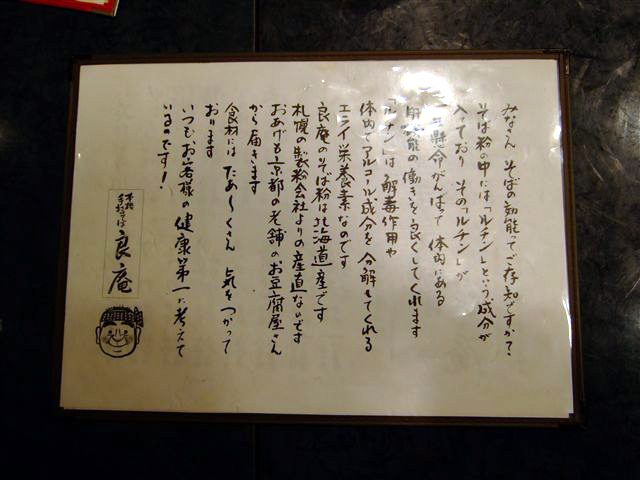 みなさん そばの効能ってご存知ですか?
そば粉の中には「ルチン」という成分が
入っており その「ルチン」が
一生懸命がんばって 体内にある
機能の働きを良くしてくれます
「ルチン」は 解毒作用や
体内でアルコール成分を 分解してくれる
エライ栄養素なのです
良庵のそば粉は北海道産です
札幌の製粉会社よりの産直ないです
おあげも京都の老舗のお豆腐屋さん
から届きます
食材には たあ〜くさん 気をつかって
おります
いつもお客様の健康第一に考えて
いるのです!
本格
手打そば
良庵